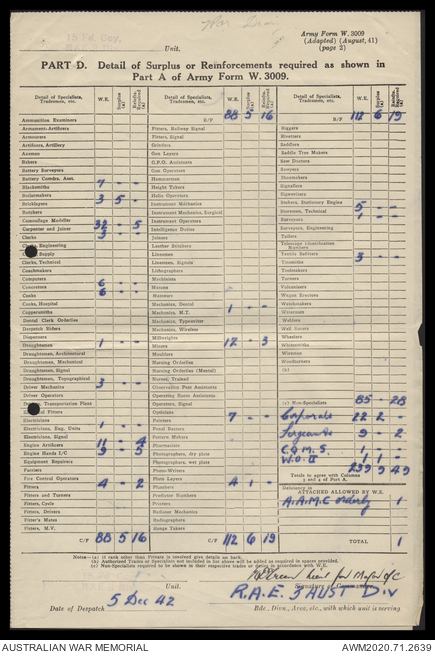 15 Fd. Coy.
Unit.
Army Form W. 3009
(Adapted) (August, 41)
(page 2)
PART D. Detail of Surplus or Reinforcements required as shown in
Part A of Army Form W. 3009.
Detail of Specialists, Tradesmen, etc. W.E. Surplus (a) Reinfts. Required (a)
Ammunition Examiners
Armament-Artificers
Armourers
Artificers, Artillery
Axemen
Bakers
Battery Surveyors
Battery Comdrs. Asst.
Blacksmiths 7 - -
Boilermakers
Bricklayers 3 5 -
Butchers
Camouflage Modeller
Carpenter and Joiner 32 - 5
Clerks 3 - -
Engineering
Supply
Clerks, Technical
Coachmakers
Computers
Concretors 6 - -
Cooks 6 - -
Cooks, Hospital
Coppersmiths
Dental Clerk Orderlies
Despatch Riders
Dispensers
Draughtsmen 1 - -
Draughtsmen, Architectural
Draughtsmen, Mechanical
Draughtsmen, Signal
Draughtsmen, Topographical
Driver Mechanics 3 - -
Driver Operators
Transportation Plant
Fitters
Electricians 1 - -
Electricians, Eng. Units
Electricians, Signal
Engine Artificers 11 - 4
Engine Hands I/C 9 - 5
Equipment Repairers
Farriers
Fire Control Operators 4 - 2
Fitters
Fitters and Turners
Fitters, Cycle
Fitters, Drivers
Fitter's Mates
Fitters, M.V.
C/F 88 5 16
Detail of Specialists, Tradesmen, etc. W.E. Surplus (a) Reinfts. Required (a)
B/F 88 5 16
Fitters, Railway Signal
Fitters, Signal
Grinders
Gun Layers
G.P.O. Assistants
Gun Operators
Hammermen
Height Takers
Helio Operators
Instrument Mechanics
Instrument Mechanics, Surgical
Instrument Operators
Intelligence Duties
Joiners
Leather Stitchers
Linesmen
Linesmen, Signals
Lithographers
Machinists
Masons
Mechanics, Dental 1 - -
Mechanics, M.T.
Mechanics, Typewriter
Mechanics, Wireless
Millwrights
Miners 12 - 3
Moulders
Nursing Orderlies
Nursing Orderlies (Mental)
Nurses, Trained
Observation Post Assistants
Operating Room Assistants
Operators, Signal
Opticians
Painters 7 - -
Panel Beaters
Pattern Makers
Pharmacists
Photographers, dry plate
Photographers, wet plate
Photo-Writers
Plate Layers 4 1 -
Plumbers
Predictor Numbers
Printers
Radiographers
Range Takers
C/F 112 6 19
Detail of Specialists, Tradesmen, etc. W.E. Surplus (a) Reinfts. Required (a)
B/F 112 6 19
Riggers
Riveters
Saddlers
Saddle Tree Makers
Saw Doctors
Sawyers
Shoemakers
Signallers
Sigwriters
Stokers, Stationary Engine
Storemen, Technical 5 - -
Surveyors 1 - -
Surveyors, Engineering
Tailors
Telescope Identification Numbers
Textile Refitters 3 - -
Tinsmiths
Toolmakers
Turners
Vulcanisers
Wagon Erectors
Watchmakers
Watermen
Welders
Well Borers
Wheelers
Whitesmiths
Wiremen
Woodturners
(b)
(c) Non-Specialists 85 - 28
Corporals 22 2 -
Sergeants 9 - 2
C.Q.M.S. 1 1 -
W.O. II 1 - -
239 9 49
Totals to agree with Columns 3 and 4 of Part A.
ATTACHED ALLOWED BY W.E.
A.A.M.C orderly 1
TOTAL 1
Notes—(a) If rank other than Private is involved give details on back.
(b) Authorized Trades or Specialists not included in list above will be added as required in spaces provided.
(c) Non-Specialists required to be shown in their respective trades or duties in accordance with W.E.
Lieut for Major O/C
Unit. Signature of Commander.
R.A.E. 3 AUST Div
5 Dec 42
Date of Despatch Bde., Divn., Area, etc., with which unit is serving.
AUSTRALIAN WAR MEMORIAL AWM2020.71.2639